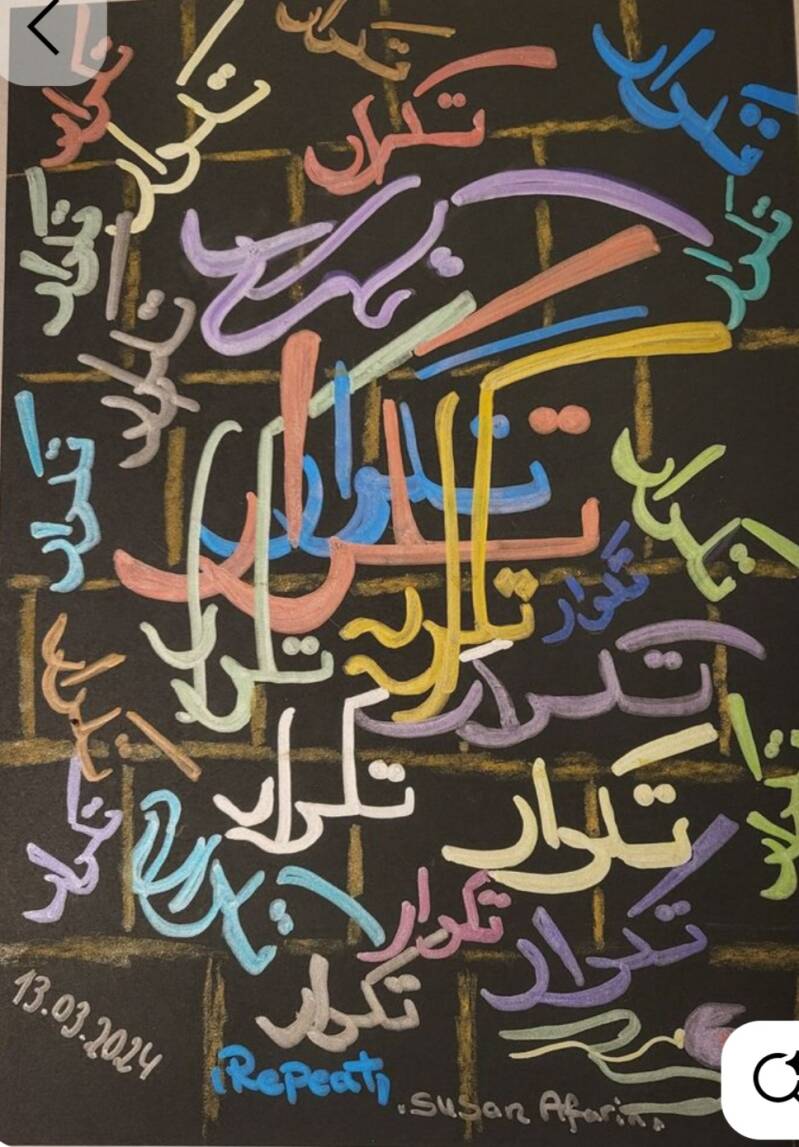 تکرار
تکرار
تکرار
تکرار
تکرار
تکرار
تکرار
تکرار
تکرار
تکرار
تکرار
تکرار
تکرار
تکرار
تکرار
تکرار
تکرار
تکرار
تکرار
تکرار
تکرار
تکرار
تکرار
تکرار
تکرار
تکرار
13.03.2024
Repeat
Susan Afarin